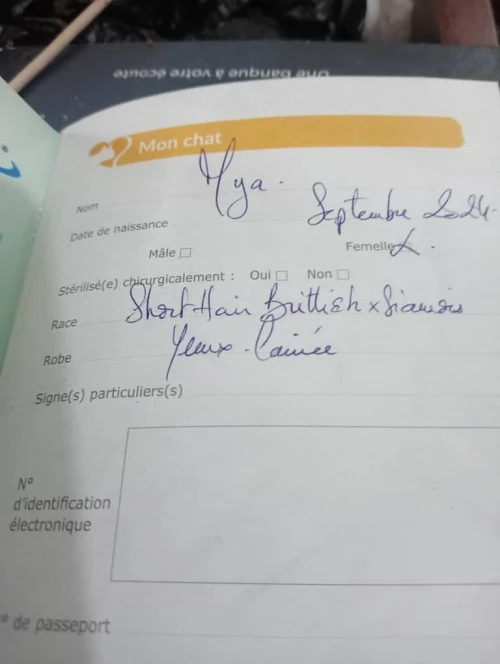 Une banque à votre écoute
Mon chat
Nom Mya.
Date de naissance Septembre 2024.
Mâle Femelle
Stérilisé(e) chirurgicalement : Oui Non
Race Short Hair Brittish x Siamois
Robe Yeux.
Signe(s) particuliers(s)
N°
d'identification
électronique
° de passeport